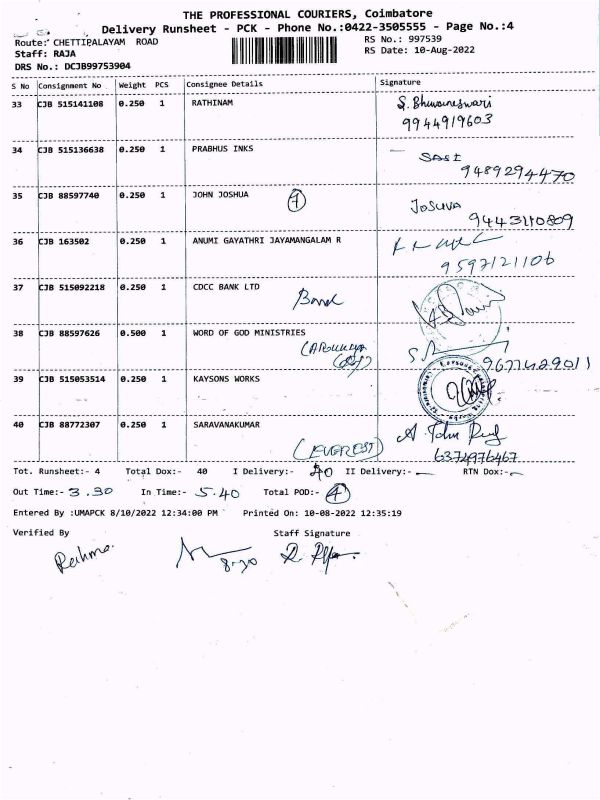 THE PROFESSIONAL COURIERS, Coimbatore
Delivery Runsheet - PCK - Phone No.:0422-3505555 - Page No.:4
Route: CHETTIPALAYAM ROAD
RS No.: 997539
Staff: RAJA
RS Date: 10-Aug-2022
DRS No.: DCJB99753904
S No Consignment No Weight PCS Consignee Details Signature
33 CJB 515141108 0.250 1 RATHINAM S. Bhuvaneswari
9944919603
34 CJB 515136638 0.250 1 PRABHUS INKS SASI
9489294470
35 CJB 88597740 0.250 1 JOHN JOSHUA JOSUVA
9443110809
36 CJB 163502 0.250 1 ANUMI GAYATHRI JAYAMANGALAM R
9597121106
37 CJB 515092218 0.250 1 CDCC BANK LTD
38 CJB 88597626 0.500 1 WORD OF GOD MINISTRIES
9677429011
39 CJB 515053514 0.250 1 KAYSONS WORKS
40 CJB 88772307 0.250 1 SARAVANAKUMAR
(EVEREST) 6374976467
Tot. Runsheet:- 4 Total Dox:- 40 I Delivery:- 40 II Delivery:- - RTN Dox:- -
Out Time:- 3.30 In Time:- 5.40 Total POD:- 4
Entered By :UMAPCK 8/10/2022 12:34:00 PM Printed On: 10-08-2022 12:35:19
Verified By Staff Signature
8-30